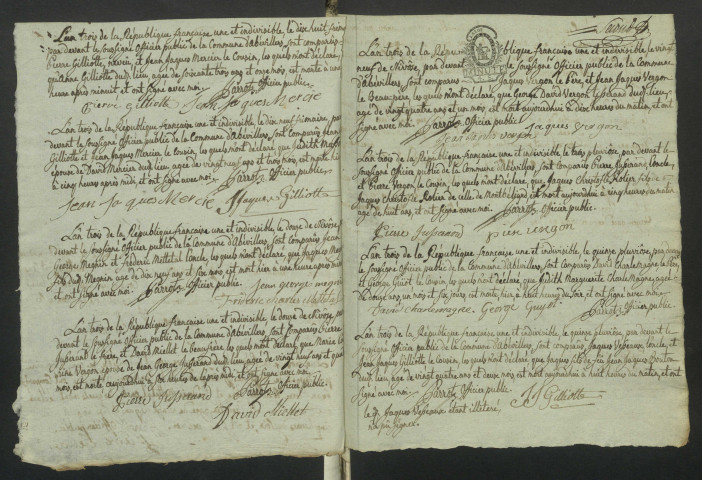 L'an trois de la République française une et indivisible, le dixe huit frim
par devant le soussigné Officier public de la Commune d'Abévillers, sont comparus
Pierre Gilliotte, Neveu, et Jean Jaques Mercier le Cousin, les quels m'ont déclaré,
qu'Anne Gilliotte dud. lieu, agée de soixante trois ans et onze mois, est morte à une
heure après minuit et ont signé avec moi. Parrot Officier public.
Pierre Gilliotte Jean Jaques Mercié
L'an trois de la République française une et indivisible, le dix neuf frimaire, par
devant le soussigné Officier public de la Commune d'Abévillers, sont comparus Jean
Gilliotte et Jean Jaques Mercier le Cousin, les quels m'ont déclaré que Judith
épouse de David Mercier dud. lieu, agée de vingt neuf ans et trois mois, est morte hier
à cinq heures après midi, et ont signé avec moi. Parrot Officier public.
Jean Jaques Mercié J Jaques Gilliotte
L'an trois de la République française une et indivisible, le douze de Nivôse, par
devant le soussigné Officier public de la Commune d'Abévillers, sont comparus Jean
George Megnin et Fréderic les quels m'ont déclaré, que Jaques Meg
dud. Megnin, agé de dix neuf ans et six mois, est mort hier à une heure après midi
et ont signé avec moi. Parrot Officier public. Jean george megnin
L'an trois de la République française une et indivisible, le douze de Nivose, par
devant le soussigné Officier public de la Commune d'Abévillers, sont comparus Pierre
Jusserand le frère, et David Miellet le beaufrère, les quels m'ont déclaré, que Marie
Vergon épouse de Jean George Jusserand dud. lieu agée de vingt neuf ans et
mois, est morte aujourd'hui à six heures de l'après midi, et ont signé avec moi.
Pierre Jusserand Parrot Officier public.
David Miellet
MINUTE
L'an trois de la République française une et indivisible, le vingt
neuf de Nivôse, par devant le soussigné Officier public de la Commune
d'Abévillers, sont comparus Jaques Vergon le Père, et Jean Jaques Vergon
le Beaupère, les quels m'ont déclaré, que George David Vergon le dud. lieu,
agé de vingt quatre ans et un mois, est mort aujourd'hui à dix heures du matin, et ont
signé avec moi. Parrot Officier public.
Jaques Vergon
L'an trois de la République française une et indivisible, le trois pluviôse, par devant le
soussigné Officier public de la Commune d'Abévillers, sont comparus Pierre Jusserand, l'oncle,
et Pierre Vergon, le Cousin, les quels m'ont déclaré, que Jaques Christofle fils de
Jaques Christofle de ville de Montbéliard, est mort aujourd'hui à cinq heures du matin,
agé de huit ans, et ont signé avec moi. Parrot Officier public.
Pierre Jusserand pier vergon
L'an trois de la République française une et indivisible, le quinze pluviôse, par devant
le soussigné Officier public de la Commune d'Abévillers, sont comparus David Charlemagne le Père,
et George Guiot le Cousin, les quels m'ont déclaré, que Judith Marguerite Charlemagne, agée
de douze ans, un mois et six jours est morte, hier à huit heures du soir, et ont signé avec moi.
David Charlemagne George Guyot Parrot Officier public.
L'an trois de la République française une et indivisible, le quinze pluviôse, par devant le
soussigné Officier public de la Commune d'Abévillers, sont comparus, Jaques l'oncle, et
Jean Jaques Gilliotte le Cousin, les quels m'ont déclaré, que Jaques fils de feu Jean Jaques
dud. lieu, agé de vingt quatre ans et deux mois, est mort aujourd'hui à huit heures du matin, et ont
signé avec moi. Parrot Officier public.
le d. Jaques étant illiteré, JJ Gilliotte
n'a pu signer.